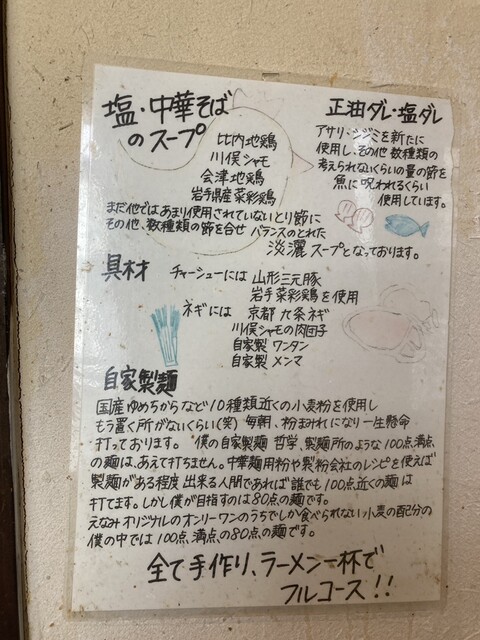 塩・中華そば
のスープ
比内地鶏
川俣シャモ
会津地鶏
岩手県産菜彩鶏
まだ他ではあまり使用されていないとり節に
その他、数種類の節を合せ バランスのとれた
淡麗スープとなっております。
正油ダレ・塩ダレ
アサリ・シジミを新たに
使用し、その他 数種類の
考えられないくらいの量の節を
魚に呪われるくらい
使用しています。
具材
チャーシューには 山形三元豚
岩手菜彩鶏を使用
ネギには 京都 九条ネギ
川俣シャモの肉団子
自家製 ワンタン
自家製 メンマ
自家製麺
国産ゆめちからなど10種類近くの小麦粉を使用し
もう置く所がないくらい(笑) 毎朝、粉まみれになり一生懸命
打っております。 僕の自家製麺 哲学、製麺所のような100点満点
の麺は、あえて打ちません。中華麺用粉や製粉会社のレシピを使えば
製麺がある程度 出来る人間であれば誰でも100点近くの麺は
打てます。しかし僕が目指すのは80点の麺です。
えなみオリジナルのオンリーワンのうちでしか食べられない小麦の配分の
僕の中では100点満点の80点の麺です。
全て手作り、ラーメン一杯で
フルコース!!